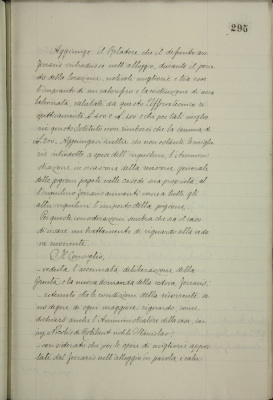 295
Aggiunge il Relatore che il defunto sig.
Ferraris introdusse nell'alloggio, durante il perio
do della locazione, notevoli migliorie e tra esse
l'impianto di un calorifero e la costruzione di una
valutate da questo Ufficio Tecnico ri
spettivamente L. e L. e che per tali miglio
rie questo Istituto non rimborsò che la somma di
L. 200. Aggiungasi inoltre che non ostante le miglio
rie introdotte a spese dell'inquilino, l'Ammini
strazione in occasione della revisione generale
delle pigioni pagate nelle case di sua proprietà, al
l'inquilino Ferraris aumentò come a tutti gli
altri inquilini l'importo della pigione.
Per queste considerazioni sembra che sia il caso
di usare un trattamento di riguardo alla vedo
va ricorrente.
Il Consiglio,
- veduta l'accennata deliberazione della
Giunta e la nuova domanda della vedova Ferraris,
- ritenuto che le condizioni della ricorrente so
no degne di ogni maggiore riguardo, come
dichiarò anche l'Amministratore della casa, sig.
ing. Nicolis di Robilant nobile Stanislao;
- considerato che per le opere di migliorie appor
tate dal Ferraris nell'alloggio in parola e valu